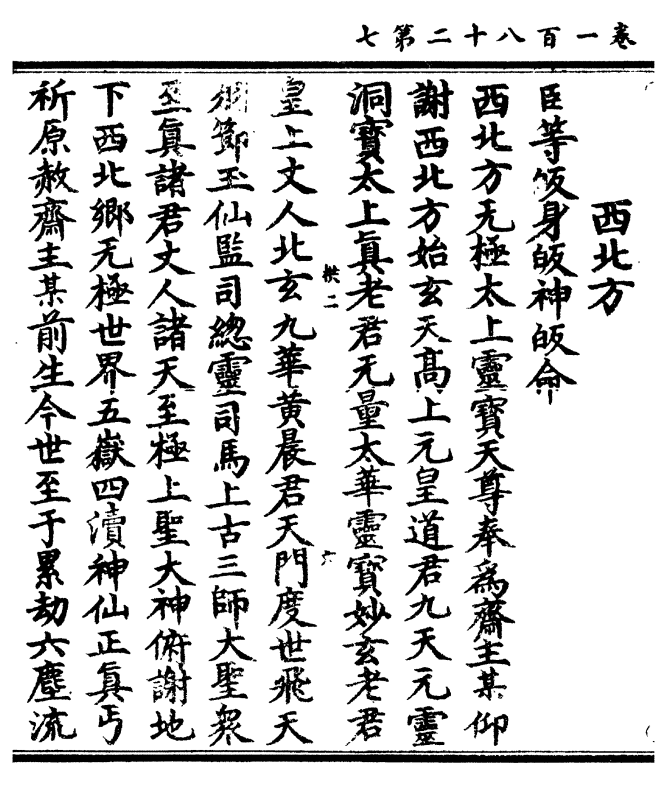 卷一百八十二第七
西北方
臣等皈身皈神皈命
西北方无極太上靈寶天尊奉爲齋主某仰
謝西北方始玄天髙上元皇道君九天元靈
洞寳太上眞老君无量太華靈寳妙玄老君
樷二
六
皇上丈人北玄九華黄晨君天門度世飛天
節玉仙監司總靈司馬上古三師大聖衆
至眞諸君丈人諸天至極上聖大神俯謝地
下西北鄉无極世界五嶽四瀆神仙正眞丐
祈原赦齋主某前生今世至于累劫六塵流